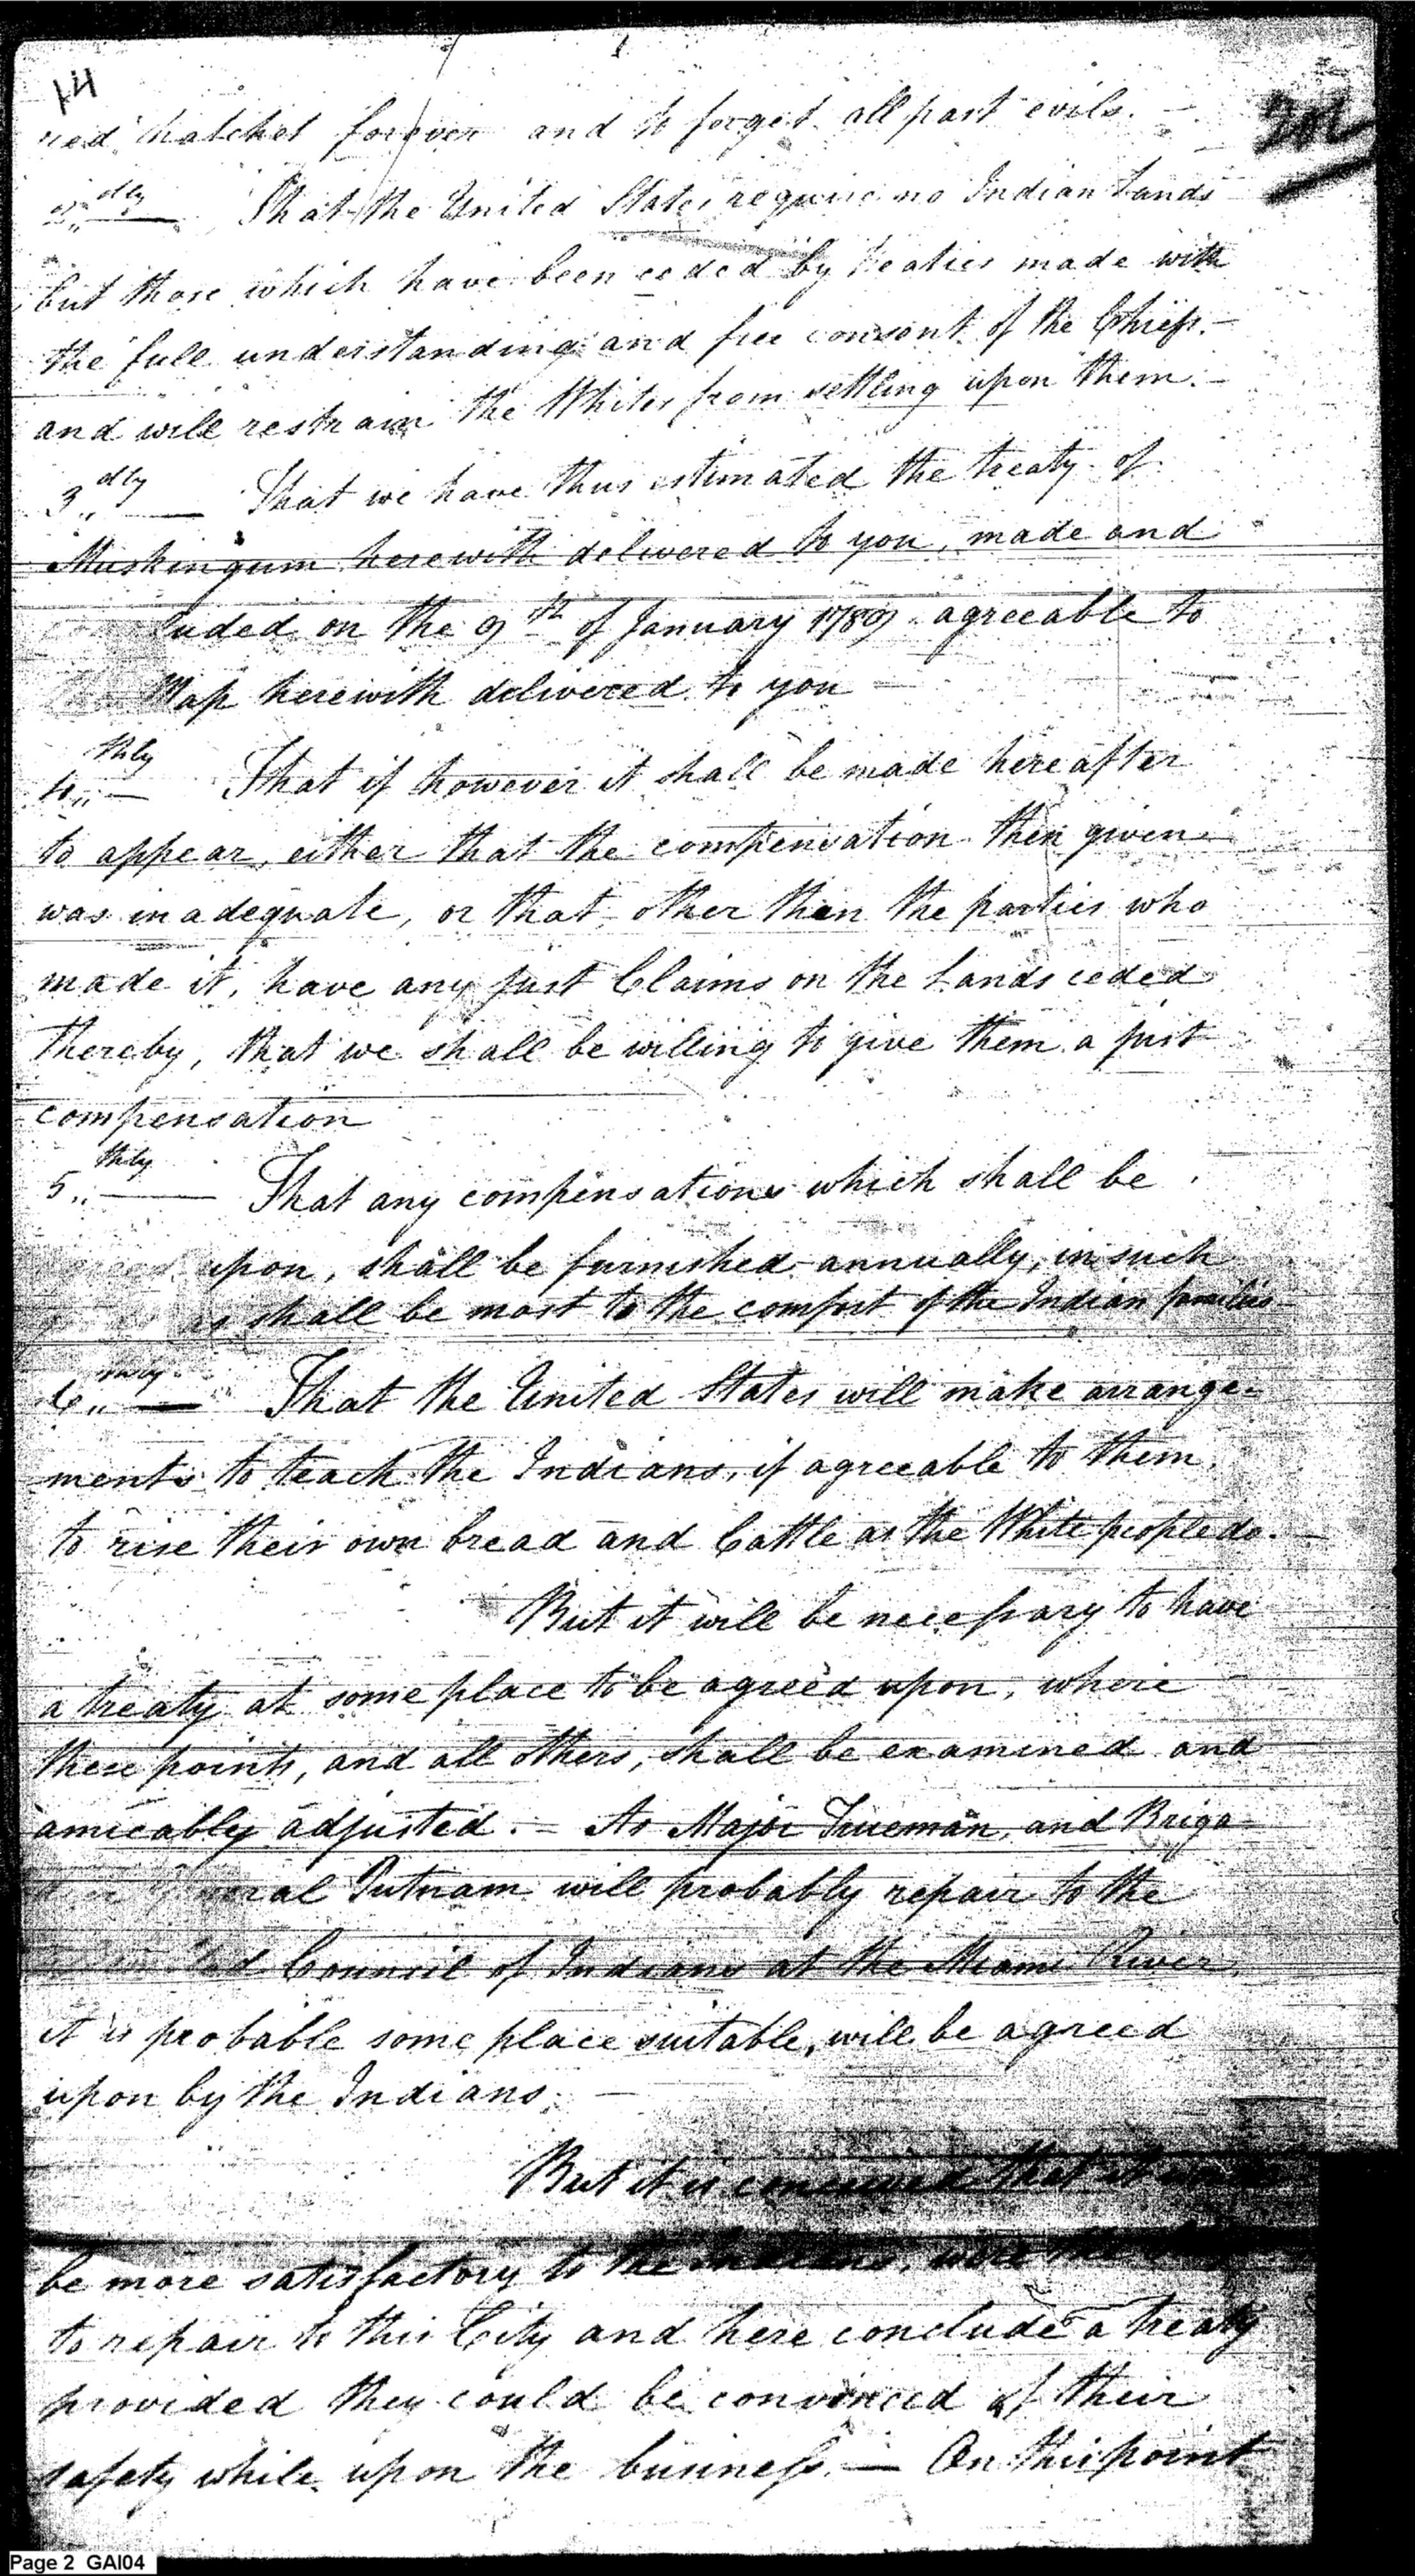 14
red hatchet forever and to forget all past evils. —
2,, dly — That the United States require no Indian Lands
but those which have been ceded by treaties made with
the full understanding and free consent of the Chiefs. —
and will restrain the Whites from settling upon them. —
3,, dly — That we have thus estimated the treaty of
Muskingum herewith delivered to you, made and
luded on the 9th of January 1789 agreeable to
Map herewith delivered to you —
4,, thly — That if however it shall be made hereafter
to appear, either that the compensation then given
was inadequate, or that other than the parties who
made it, have any just Claims on the Lands ceded
thereby, that we shall be willing to give them a just
compensation
5,, thly — That any compensations which shall be
upon, shall be furnished annually, in such
as shall be most to the comfort of the Indian families
6,, thly — That the United States will make arrange-
ments to teach the Indians, if agreeable to them,
to rise their own bread and Cattle as the White people do. —
But it will be necessary to have
a treaty at some place to be agreed upon, where
these points, and all others, shall be examined and
amicably adjusted. — As Major Trueman, and Briga-
General Putnam will probably repair to the
Council of Indians at the Miami River,
it is probable some place suitable, will be agreed
upon by the Indians. —
But it is conceived that it
be more satisfactory to the Indians, were the
to repair to this City and here conclude a treaty
provided they could be convinced of their
safety while upon the business. — On this point
Page 2 GAI04